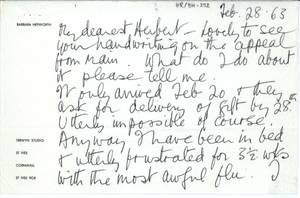 HR/BH-252
Feb. 28. 63
BARBARA HEPWORTH
My dearest Herbert - Lovely to see
your handwriting on the appeal
from Mam. What do I do about
it please tell me.
It only arrived Feb 20 & they
ask for delivery of gift by 28th
Utterly impossible of course.
Anyway, I have been in bed
& utterly frustrated for 3½ wks
with the most awful flu. I
TREWYN STUDIO
ST IVES
CORNWALL
ST IVES